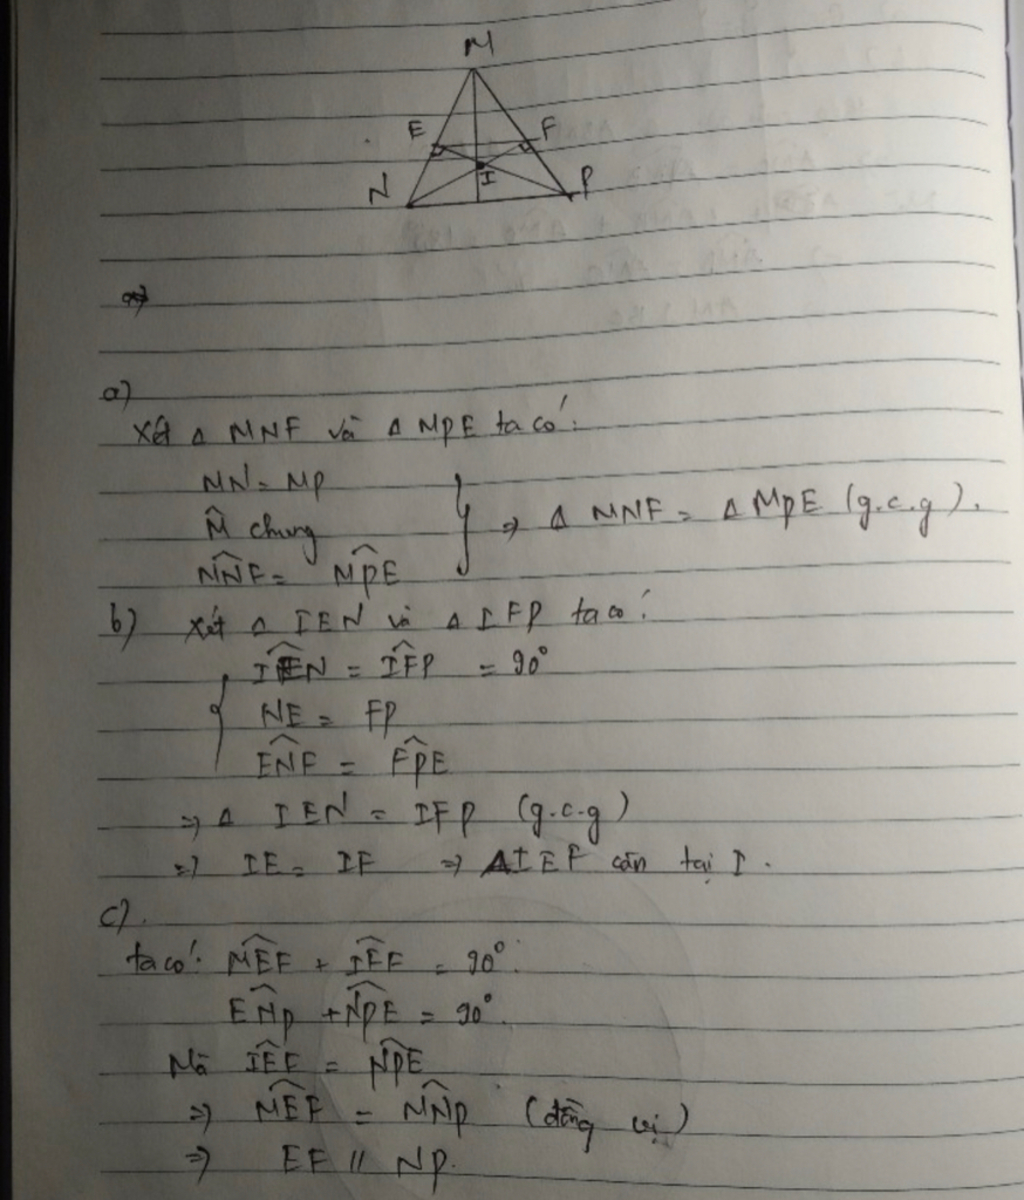 M
E
F
I
N
P
a)
Xét Δ MNF và Δ MPE ta có:
MN = MP
M̂ chung
⇒ Δ MNF = Δ MPE (g.c.g).
MN̂F = MP̂E
b) Xét Δ IEN và Δ IFP ta có:
IÊN = IF̂P = 90°
NE = FP
EN̂F = FP̂E
⇒ Δ IEN = IFP (g.c.g)
⇒ IE = IF ⇒ ΔIEF cân tại I.
c).
ta có: MÊF + IÊF = 90°.
EN̂P + NP̂E = 90°.
Mà IÊF = NP̂E
⇒ MÊF = MN̂P (đồng vị)
⇒ EF // NP.